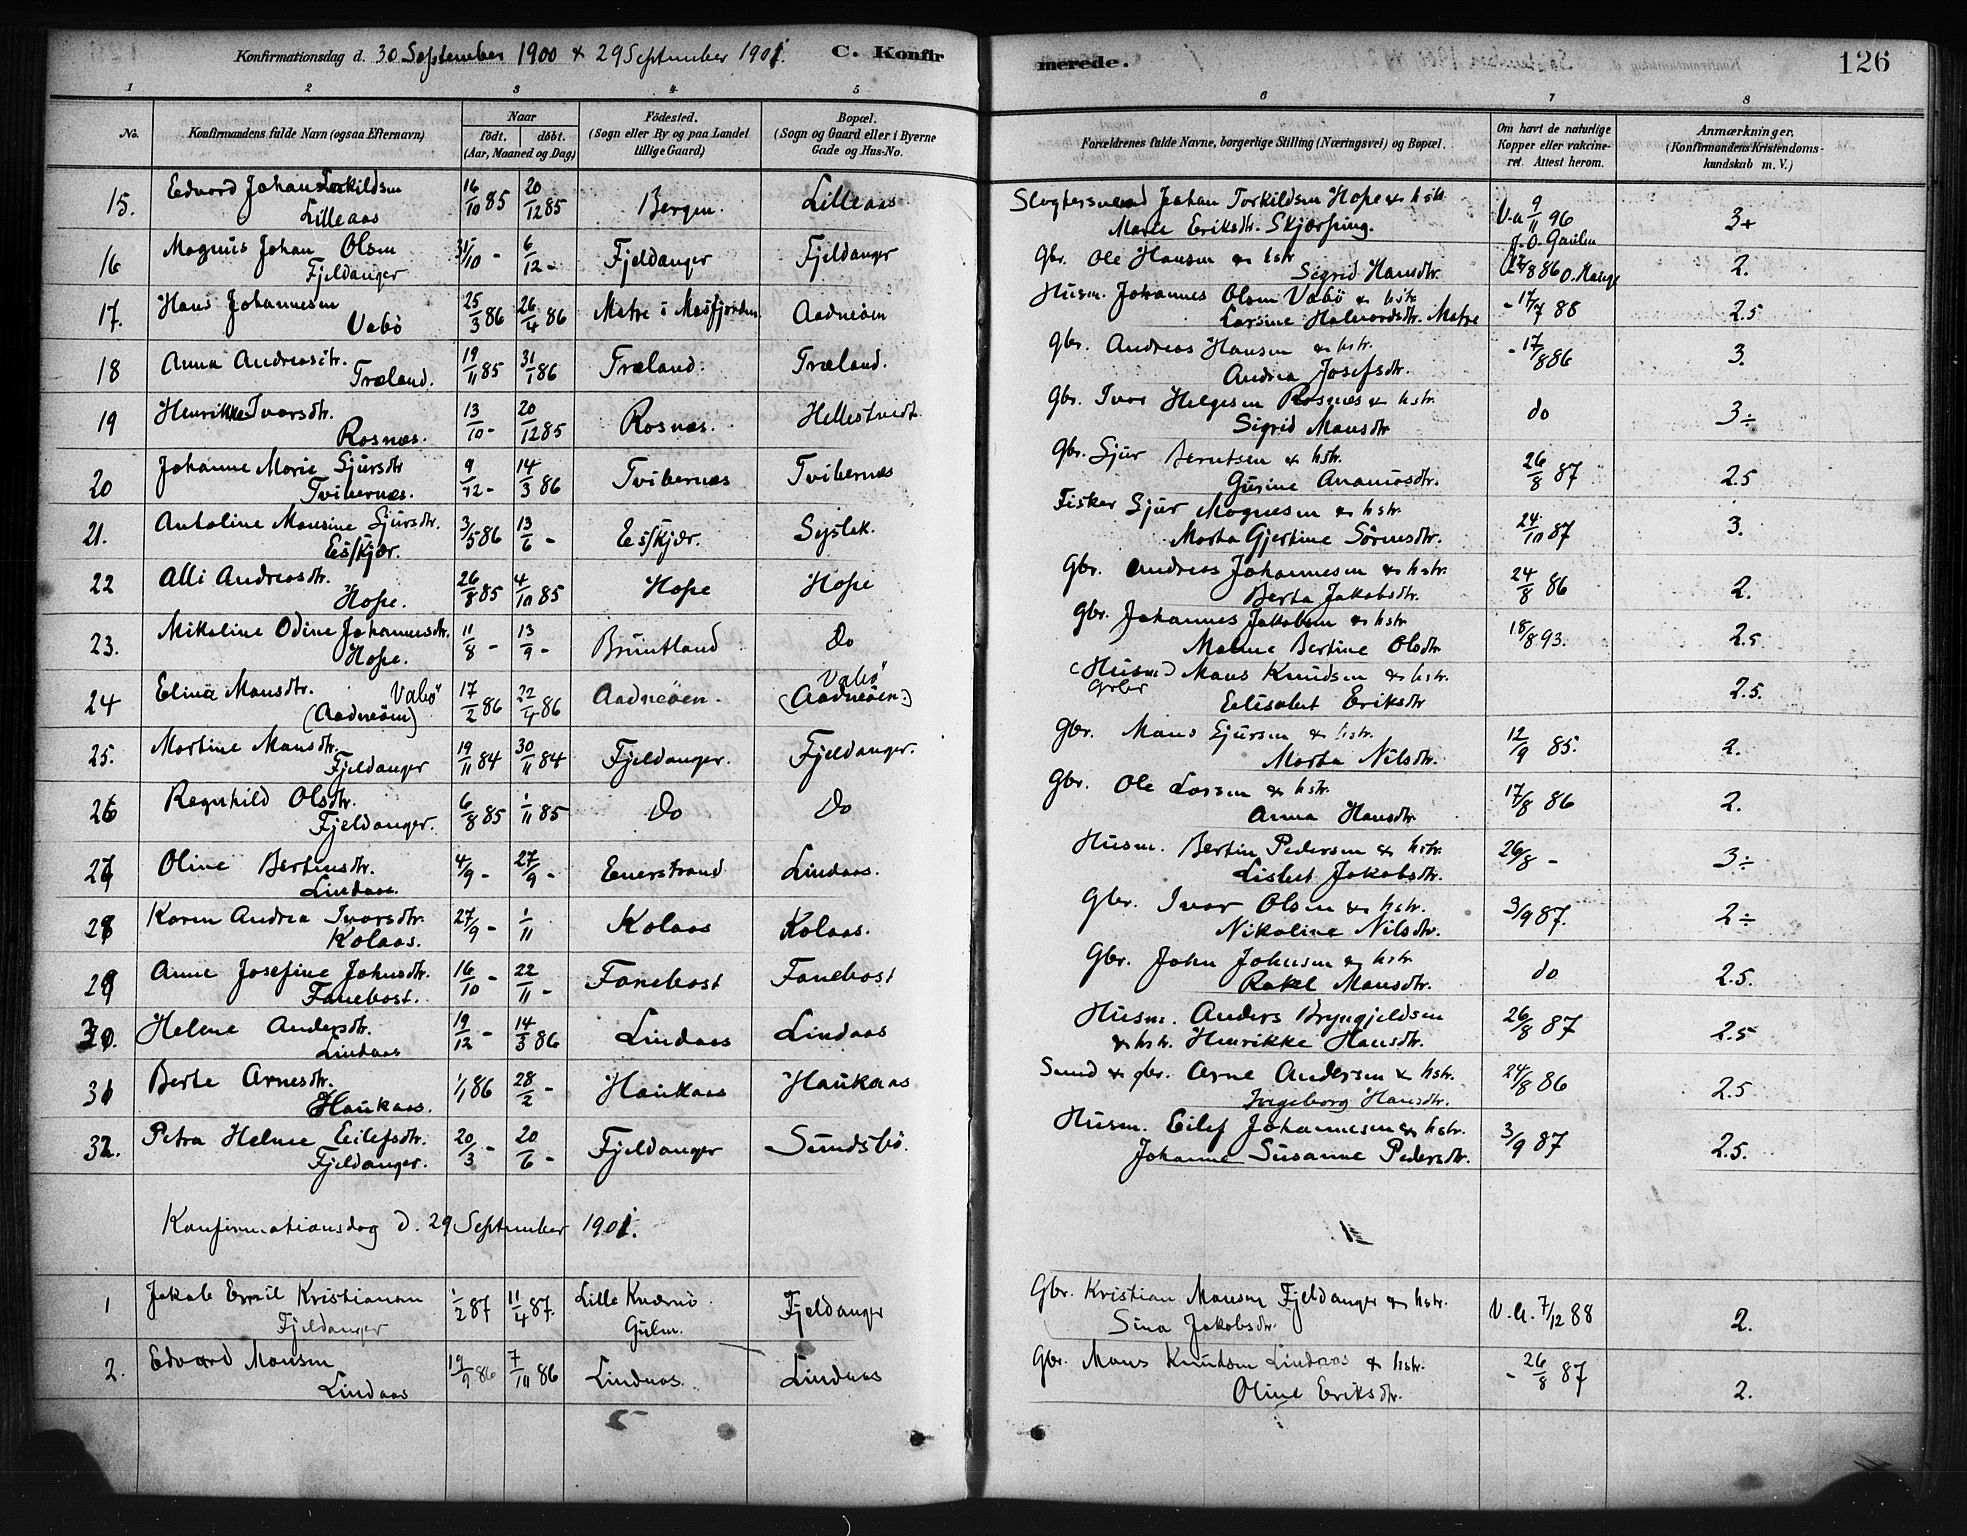 Konfirmationsdag d. 30 September 1900 & 29 September 1901. C. Konfirmerede. 126
1 2 3 4 5 6 7 8
No. Konfirmandens fulde Navn (ogsaa Efternavn) Naar født. døbt. (Aar, Maaned og Dag) Fødested. (Sogn eller By og paa Landet tillige Gaard) Bopæl. (Sogn og Gaard eller i Byerne Gade og Hus-No. Forældrenes fulde Navne, borgerlige Stilling (Næringsvei) og Bopæl. Om havt de naturlige Kopper eller vakcineret. Attest herom. Anmærkninger. (Konfirmandens Kristendomskundskab m. V.)
15. Edvard Johan Torkildsen Lilleaas 16/10 85 20/12 85 Bergen. Lilleaas Slagtersvend Johan Torkildsen Hope & hstr. Marie Eriksdtr. Skjærping. V.a 9/11 96 3+
16 Magnus Johan Olsen Fjeldanger 31/10 - 6/12 - Fjeldanger Fjeldanger Gbr. Ole Hansen & hstr. Sigrid Hansdtr. 2.
17. Hans Johannesen Vabö 25/3 86 26/4 86 Matre i Masfjorden Aadneöen Husm. Johannes Olsen Vabö & hstr. Larsine Halvordsdtr. Matre - 17/7 88 2.5
18 Anna Andreasdtr. Træland. 19/11 85 31/1 86 Træland. Træland. Gbr. Andreas Hansen & hstr. Andrea Josefsdtr. - 17/8 86 3.
19 Henrikke Ivarsdtr. Rosnæs. 13/10 - 20/12 85 Rosnæs. Hellestvedt Gbr. Ivar Helgesen Rosnæs & hstr. Sigrid Mansdtr do 3÷
20 Johanne Marie Sjursdtr Tvibernæs. 9/12 - 14/3 86 Tvibernæs Tvibernæs Gbr. Sjur Berntsen & hstr. Gurine Ananiasdtr. 26/8 87 2.5
21. Antoline Monsine Sjursdtr. Eisskjær. 3/5 86 13/6 - Eisskjær. Sejslak. Fisker Sjur Mognesen & hstr. Marta Gjertine Sörensdtr. 24/10 87 3.
22 Alli Andreasdtr. Hope. 26/8 85 4/10 85 Hope Hope Gbr. Andreas Johannesen & hstr. Berta Jakobsdtr. 24/8 86 2.
23. Mikaline Odine Johannesdtr. Hope. 11/8 - 13/9 - Bruntland Do Gbr. Johannes Jakobsen & hstr Malene Bertine Olsdtr 18/8 93. 2.5
24 Elina Mansdtr. Vabö (Aadneöen) 17/2 86 22/4 86 Aadneöen. Vabö (Aadneöen.) (Husm) Grbr Mans Knudsen & hstr. Eelisabet Eriksdtr 2.5.
25. Martine Mansdtr. Fjeldanger 19/11 84 30/11 84 Fjeldanger. Fjeldanger. Gbr. Mans Sjursen & hstr. Marta Nilsdtr. 12/9 85. 2.
26 Regnhild Olsdtr. Fjeldanger. 6/8 85 1/11 85 Do Do Gbr. Ole Larsen & hstr. Anna Hansdtr 17/8 86 2.
27 Oline Bertinsdtr. Lindaas. 4/9 - 27/9 - Enerstrand Lindaas. Husm. Bertin Pedersen & hstr. Lisbet Jakobsdtr. 26/8 - 3÷
28 Karen Andrea Ivarsdtr. Kolaas. 27/9 - 1/11 Kolaas Kolaas. Gbr. Ivar Olsen & hstr. Nikoline Nilsdtr. 3/9 87. 2÷
29 Anne Josefine Johnsdtr. Fanebost. 16/10 - 22/11 - Fanebost Fanebost Gbr. John Johnsen & hstr Rakel Mansdtr. do 2.5.
30. Helene Andersdtr. Lindaas 19/12 - 14/3 86 Lindaas Lindaas Husm. Anders Bryngjeldsen & hstr. Henrikke Hansdtr. 26/8 87 2.5
31 Berte Arnesdtr. Haukaas. 1/1 86 28/2 - Haukaas Haukaas Smed & gbr. Arne Andersen & hstr. Ingeborg Hansdtr. 24/8 86 2.5
32. Petra Helene Eilefsdtr. Fjeldanger. 20/3 - 20/6 - Fjeldanger Sundsbö. Husm. Eilef Johannesen & hstr. Johanne Susanne Pedersdtr. 3/9 87 2.5.
Konfirmationsdag d. 29 September 1901.
1 Jakob Emil Kristiansen Fjeldanger 1/2 87 11/4 87. Lille Kvernö Gulen. Fjeldanger Gbr. Kristian Mansen Fjeldanger & hstr. Sina Jakobsdtr. V. A. 7/12 88 2.
2. Edvard Monsen Lindaas 19/9 86 7/11 86 Lindaas. Lindaas Gbr. Mons Knudsen Lindaas & hstr. Oline Eriksdtr. - 26/8 87 2.